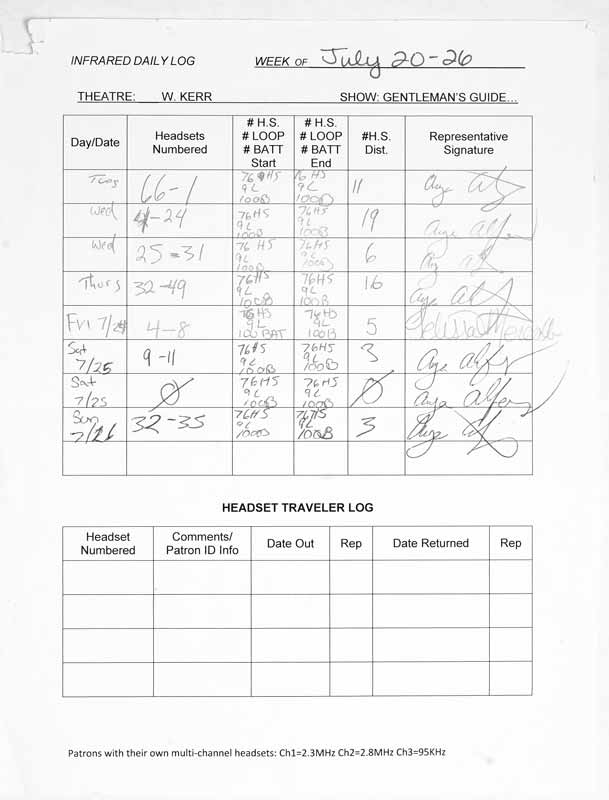 INFRARED DAILY LOG WEEK OF July 20-26
THEATRE: W. KERR SHOW: GENTLEMAN'S GUIDE...
Day/Date Headsets Numbered # H.S. # LOOP # BATT Start # H.S. # LOOP # BATT End #H.S. Dist. Representative Signature
Tues 66-1 76 HS 9L 100B 76 HS 9L 100B 11
Wed 4-24 76HS 9L 100B 76HS 9L 100B 19
Wed 25-31 76 HS 9L 100B 76HS 9L 100B 6
Thurs 32-49 76HS 9L 100B 76HS 9L 100B 16
Fri 7/24 4-8 76HS 9L 100 BAT 76HS 9L 100B 5
Sat 7/25 9-11 76HS 9L 100B 76HS 9L 100B 3
Sat 7/25 Ø 76HS 9L 100B 76HS 9L 100B Ø
Sun 7/26 32-35 76HS 9L 100B 76HS 9L 100B 3
HEADSET TRAVELER LOG
Headset Numbered Comments/ Patron ID Info Date Out Rep Date Returned Rep
Patrons with their own multi-channel headsets: Ch1=2.3MHz Ch2=2.8MHz Ch3=95KHz